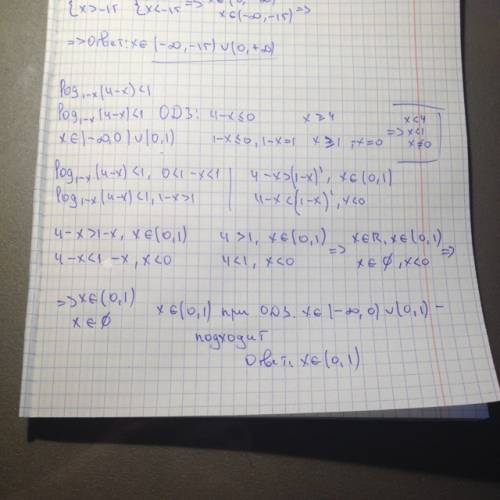 {x>-15 {x<-15 => x∈(0, +∞) x∈(-∞,-15) =>
=> Ответ: x∈(-∞,-15)∪(0,+∞)
log₁₋ₓ(4-x)<1
log₁₋ₓ(4-x)<1 ОДЗ: 4-x≤0 x≥4 x<4
x∈(-∞,0)∪(0,1) 1-x≤0, 1-x=1 x≥1, x=0 => x<1 x≠0
log₁₋ₓ(4-x)<1, 0<1-x<1 | 4-x>(1-x)¹, x∈(0,1)
log₁₋ₓ(4-x)<1, 1-x>1 | 4-x<(1-x)¹, x<0
4-x>1-x, x∈(0,1) 4>1, x∈(0,1) => x∈R, x∈(0,1) =>
4-x<1-x, x<0 4<1, x<0 x∈∅, x<0
=> x∈(0,1) x∈(0,1) при ОДЗ. x∈(-∞,0)∪(0,1) -
x∈∅ подходит
Ответ: x∈(0,1)